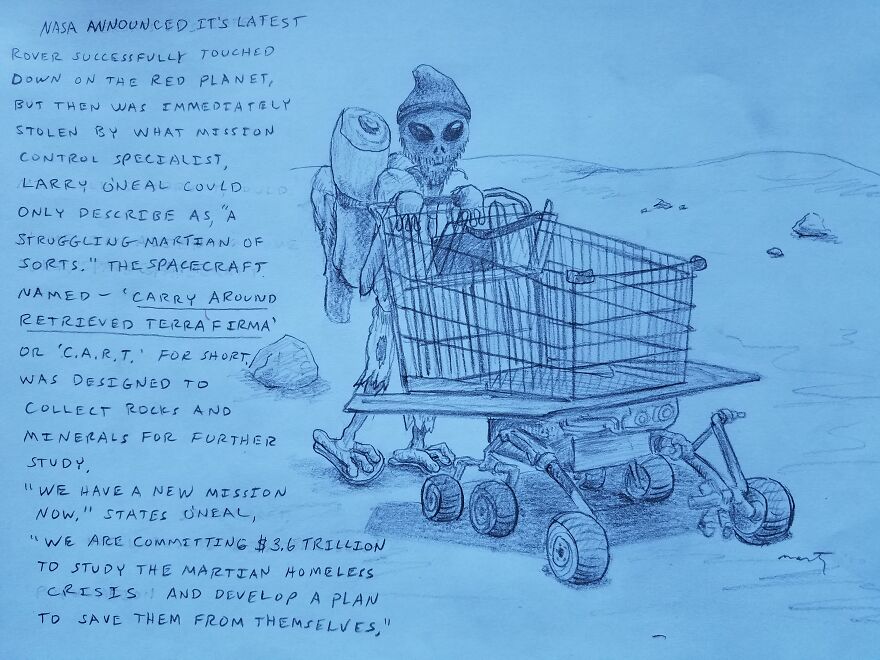 NASA ANNOUNCED IT'S LATEST
ROVER SUCCESSFULLY TOUCHED
DOWN ON THE RED PLANET,
BUT THEN WAS IMMEDIATELY
STOLEN BY WHAT MISSION
CONTROL SPECIALIST,
LARRY O'NEAL COULD
ONLY DESCRIBE AS, "A
STRUGGLING MARTIAN OF
SORTS." THE SPACECRAFT
NAMED - 'CARRY AROUND
RETRIEVED TERRA FIRMA'
OR 'C.A.R.T.' FOR SHORT,
WAS DESIGNED TO
COLLECT ROCKS AND
MINERALS FOR FURTHER
STUDY.
"WE HAVE A NEW MISSION
NOW," STATES O'NEAL,
"WE ARE COMMITTING $3.6 TRILLION
TO STUDY THE MARTIAN HOMELESS
CRISIS AND DEVELOP A PLAN
TO SAVE THEM FROM THEMSELVES."
marty